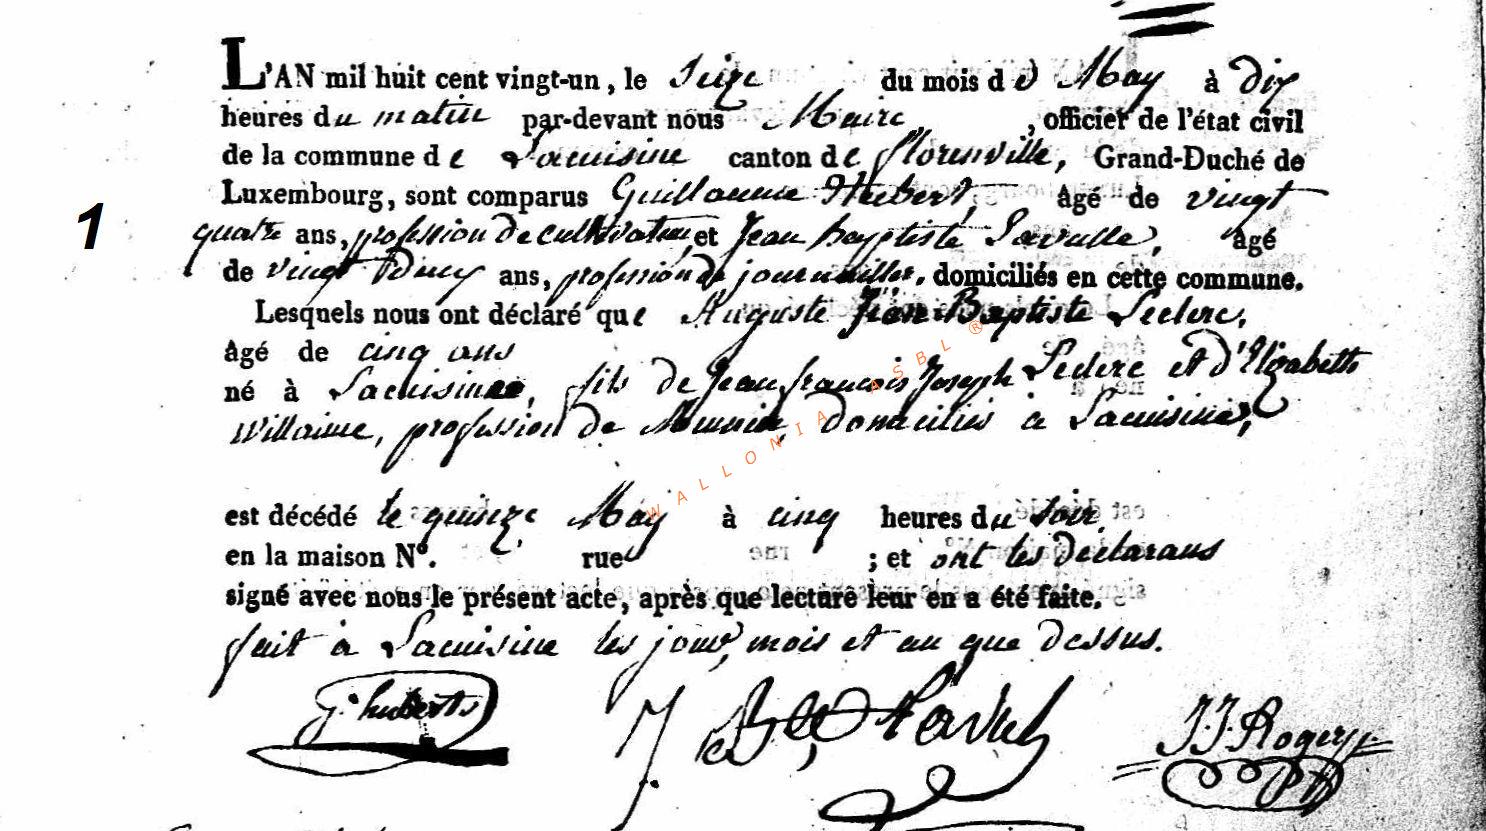 L'AN mil huit cent vingt-un, le Seize du mois de May à dix
heures du matin par-devant nous Maire, officier de l'état civil
de la commune de Lacuisine canton de florenville, Grand-Duché de
Luxembourg, sont comparus Guillaume Hubert, âgé de vingt
1
quatre ans, profession de cultivateur, et Jean baptiste Lavalle, âgé
de vingt deux ans, profession de journaillier. domiciliés en cette commune.
Lesquels nous ont déclaré que Auguste Jean Baptiste Leclere,
âgé de cinq ans
né à Lacuisine, fils de Jean françois Joseph Leclere et d'Elizabeth
Willaime, profession de Meunier, domiciliés à Lacuisine,
WALLONIA ASBL ®
est décédé le quinze May à cinq heures du soir,
en la maison N°. rue ; et ont les declarans
signé avec nous le présent acte, après que lecture leur en a été faite.
fait à Lacuisine les jour, mois et an que dessus.
G. huberts J. Bte Lavul J. J. Rogery